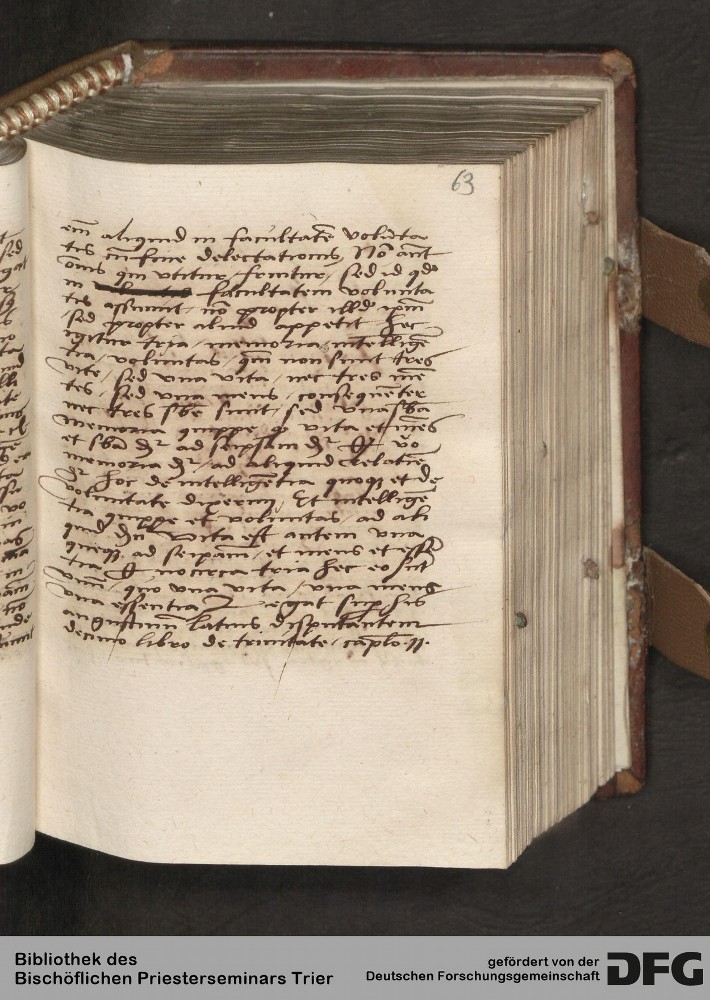 63
em aliquid in facultatē volunta
tis cū fine delectationis, Nō aūt
om̄is qui vtitur, fruitur, sed id qđ
in facultatem volunta
tis assumit, nō propter illđ ipm̄
sed propter aliud appetit hec
igitur tria, memoria, intelligē
tia, voluntas, qm̄ non sunt tres
vite, sed vna vita, nec tres mē
tes, sed vna mens, consequēter
nec tres sb̄e sunt, sed vna sb̄a
Memoria quippe q̄ vita et mēs
et sb̄a dr̄ ad seipsam dr̄ vō
memoria dr̄, ad aliquid relatiue
dr̄ hoc de intelligētia quoque et de
voluntate dixerim, Et intelligē
tia quippe et voluntas, ad ali
quid dn̄r Vita est autem vna
queq̄ ad seipam̄, et mens et essē
tia nocirca tria hec eo sūt
vnū, quo vna vita, vna mens
vna essentia legat sup̄ his
augustinum latius disputantem
decimo libro de trinitate, cap̄lo .11.
Bibliothek des
Bischöflichen Priesterseminars Trier
gefördert von der
Deutschen Forschungsgemeinschaft
DFG